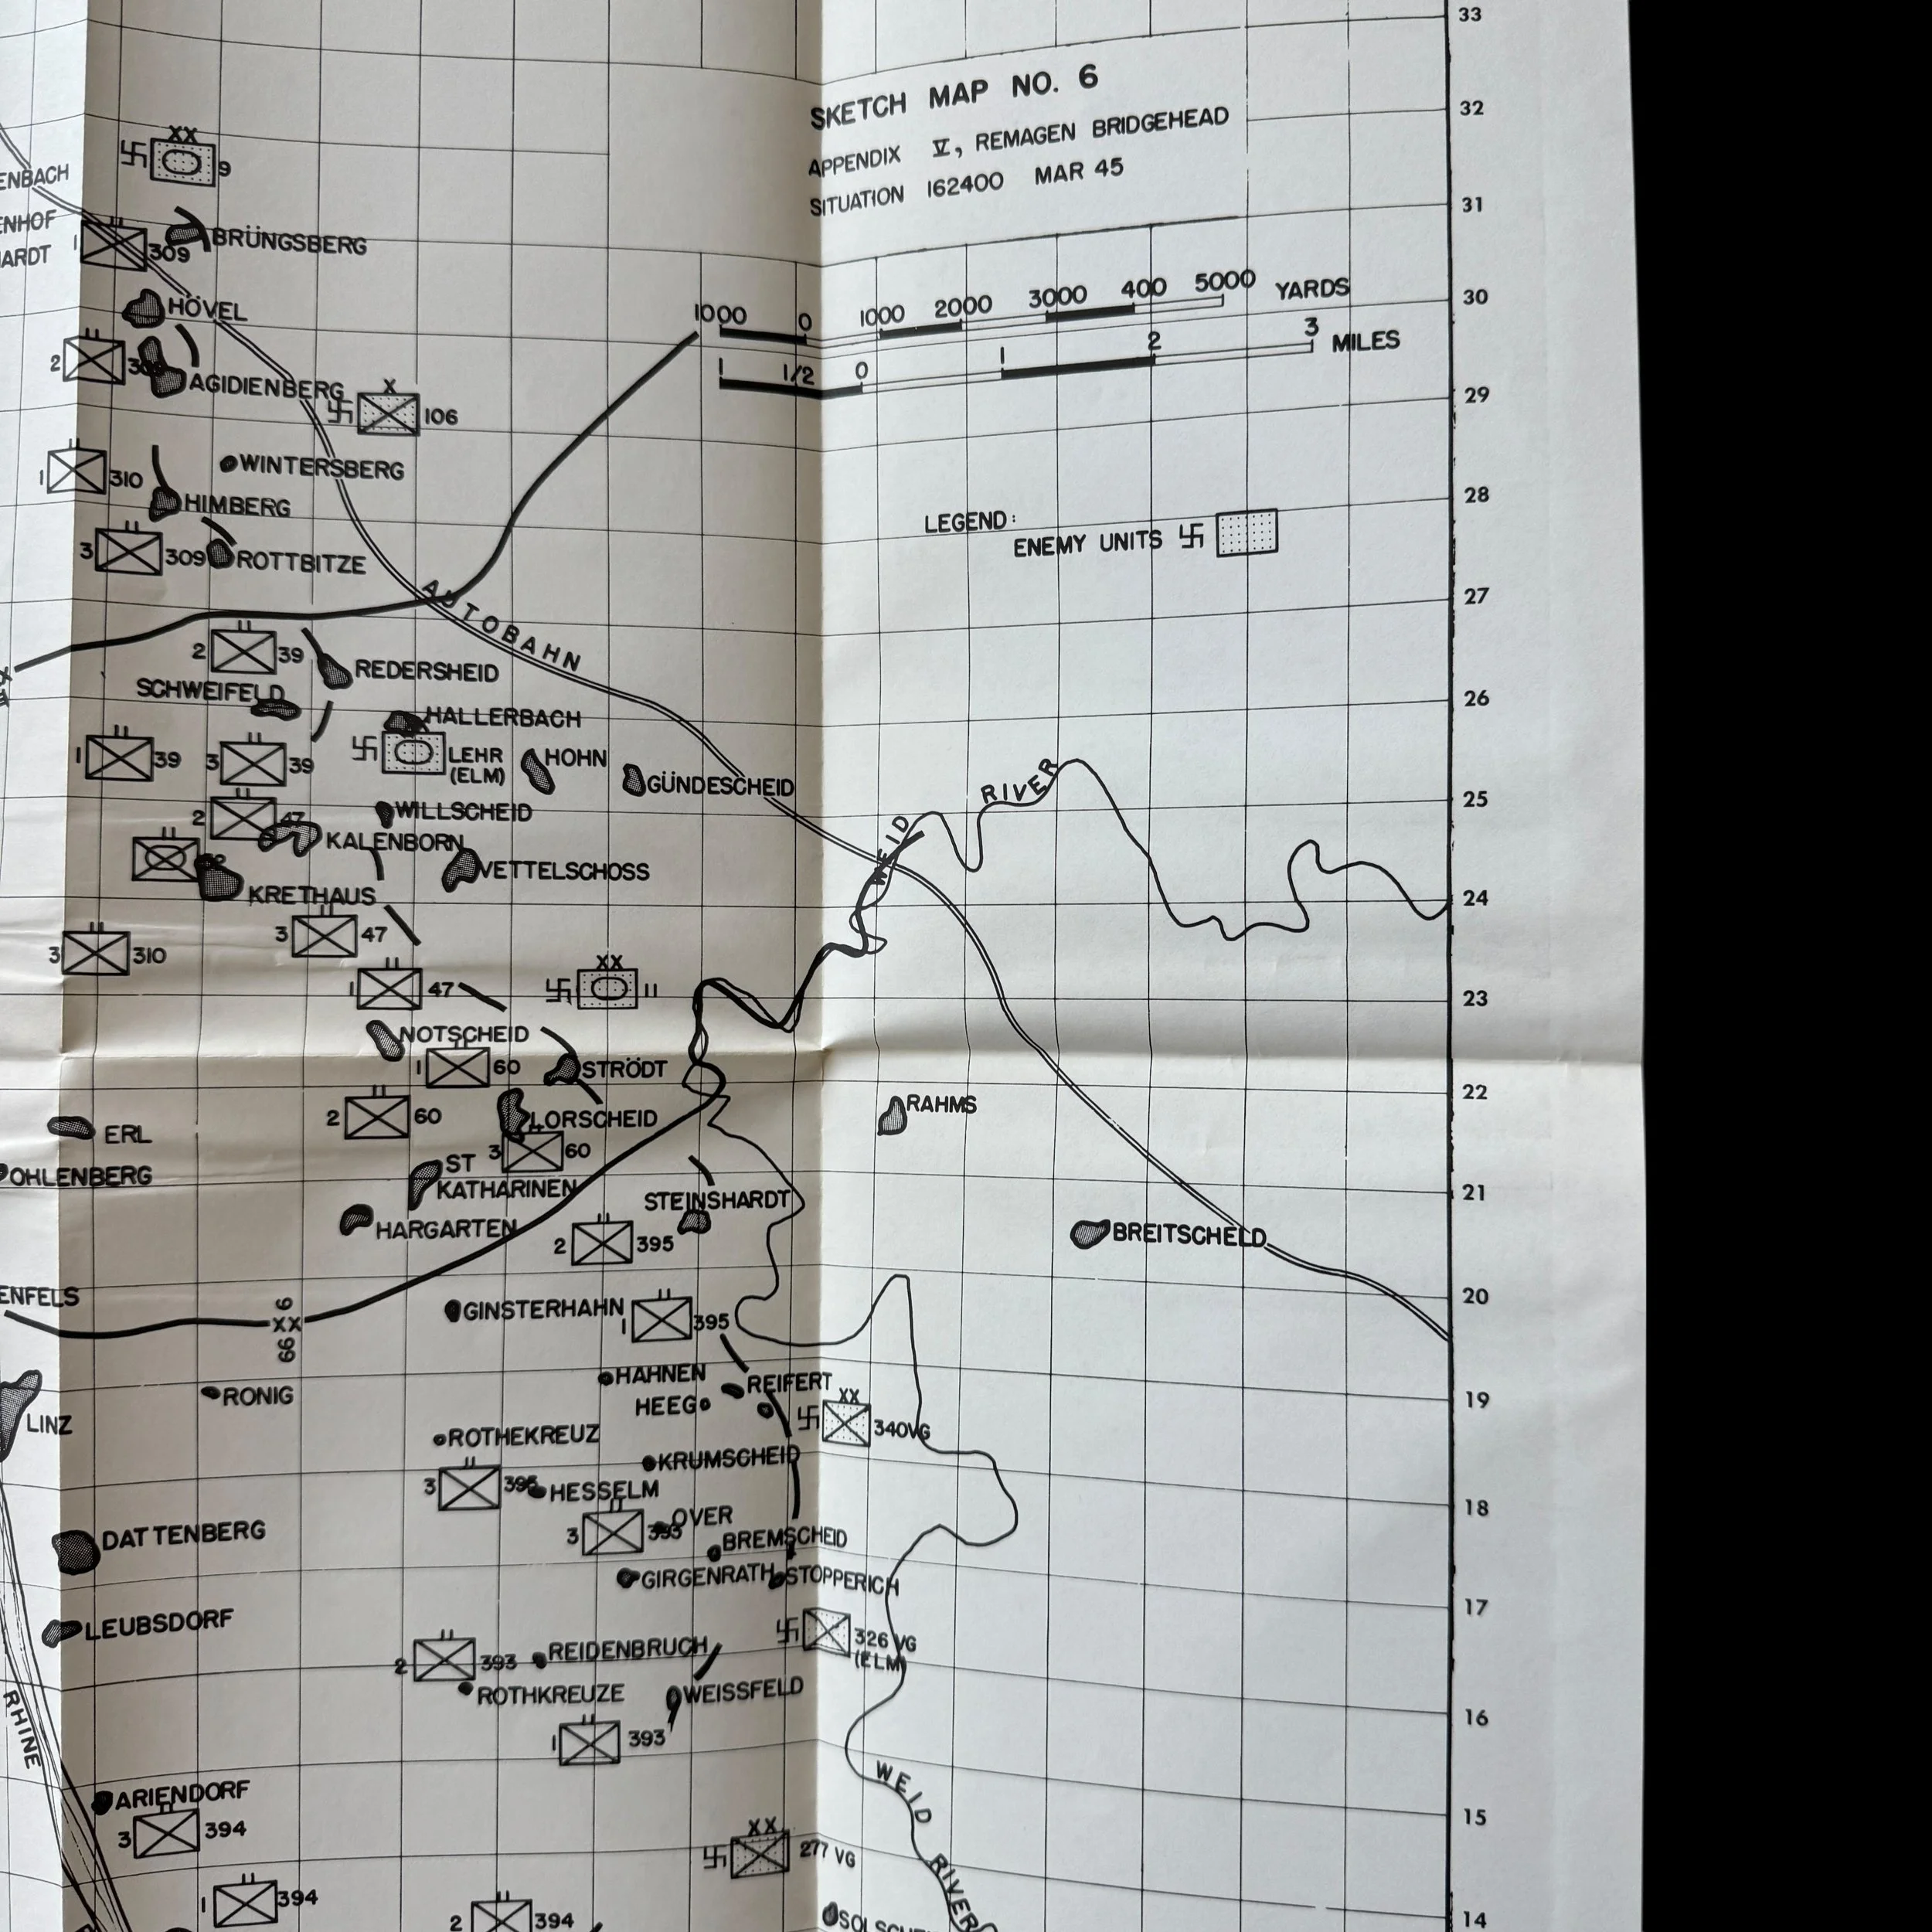 SKETCH MAP NO. 6
APPENDIX V, REMAGEN BRIDGEHEAD
SITUATION 162400 MAR 45
1000 0 1000 2000 3000 400 5000 YARDS
1 1/2 0 1 2 3 MILES
LEGEND:
ENEMY UNITS
33
32
31
30
29
28
27
26
25
24
23
22
21
20
19
18
17
16
15
14
XX
9
ENBACH
ENHOF
ARDT
1 309
BRÜNGSBERG
HÖVEL
2
AGIDIENBERG
X
106
1 310
WINTERSBERG
HIMBERG
3 309
ROTTBITZE
AUTOBAHN
2 39
REDERSHEID
SCHWEIFELD
HALLERBACH
1 39
3 39
LEHR
(ELM)
HOHN
GÜNDESCHEID
2 47
WILLSCHEID
KALENBORN
VETTELSCHOSS
KRETHAUS
3 47
3 310
1 47
XX
11
WEID RIVER
NOTSCHEID
1 60
STRÖDT
2 60
LORSCHEID
3 60
RAHMS
ERL
OHLENBERG
ST
KATHARINEN
STEINSHARDT
HARGARTEN
2 395
BREITSCHELD
ENFELS
6
XX
99
GINSTERHAHN
1 395
HAHNEN
REIFERT
HEEG
RONIG
LINZ
XX
340VG
ROTHEKREUZ
KRUMSCHEID
3 395
HESSELM
OVER
3 393
BREMSCHEID
DATTENBERG
GIRGENRATH
STOPPERICH
LEUBSDORF
326 VG
(ELM)
2 393
REIDENBRUCH
ROTHKREUZE
WEISSFELD
1 393
RHINE
WEID RIVER
ARIENDORF
3 394
XX
277 VG
1 394
2 394